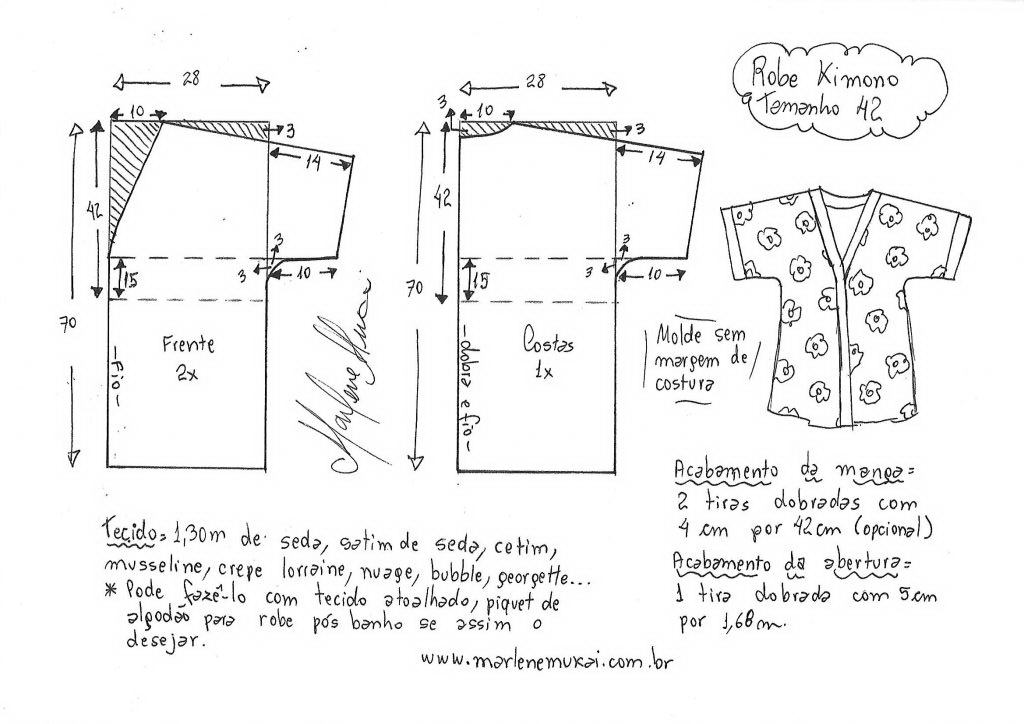 Robe Kimono
Tamanho 42
28
10
3
14
42
3
3
10
15
70
Frente
2x
-Fio-
Marlene Mukai
28
3
10
3
14
42
3
3
10
15
70
Costas
1x
-dobra e fio-
Molde sem
margem de
costura
Acabamento da manga=
2 tiras dobradas com
4 cm por 42cm (opcional)
Acabamento da abertura=
1 tira dobrada com 5cm
por 1,68m.
Tecido= 1,30m de seda, satim de seda, cetim,
musseline, crepe lorraine, nuage, bubble, georgette...
* Pode fazê-lo com tecido atoalhado, piquet de
algodão para robe pós banho se assim o
desejar.
www.marlenemukai.com.br